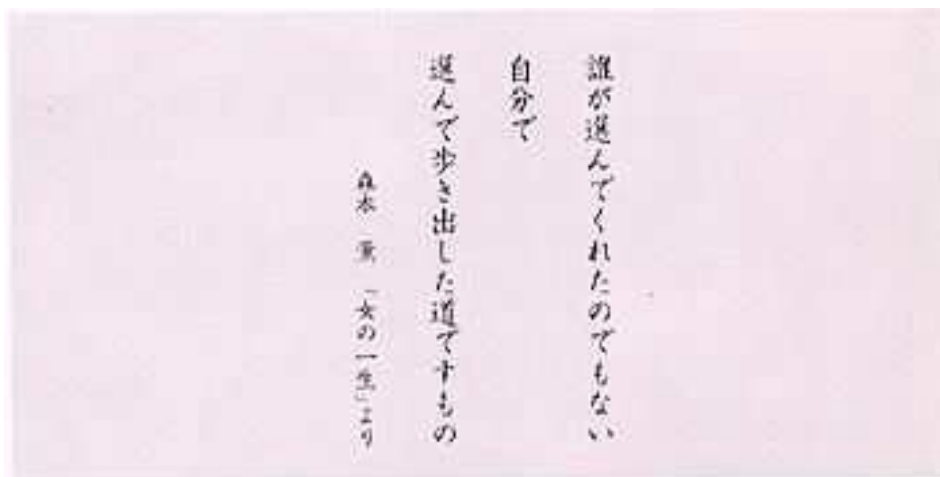 誰が選んでくれたのでもない
自分で
選んで歩き出した道ですもの
森本 薫 「女の一生」より